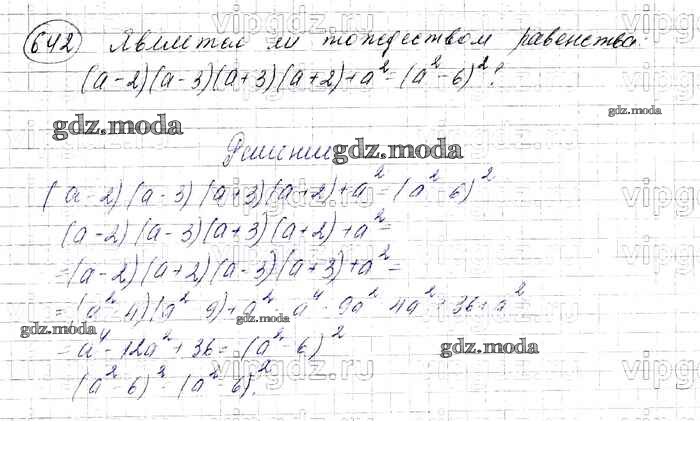 642 Является ли тождеством равенство
(a-2)(a-3)(a+3)(a+2)+a²=(a²-6)²?
gdz.moda
gdz.moda
Решение
gdz.moda
(a-2)(a-3)(a+3)(a+2)+a²=(a²-6)²
(a-2)(a-3)(a+3)(a+2)+a²=
=(a-2)(a+2)(a-3)(a+3)+a²=
=(a²-4)(a²-9)+a²=a⁴-9a²-4a²+36+a²
gdz.moda
gdz.moda
=a⁴-12a²+36=(a²-6)²
gdz.moda
(a²-6)²=(a²-6)².
vipgdz.ru
vipgdz.ru
vipgdz.ru
vipgdz.ru